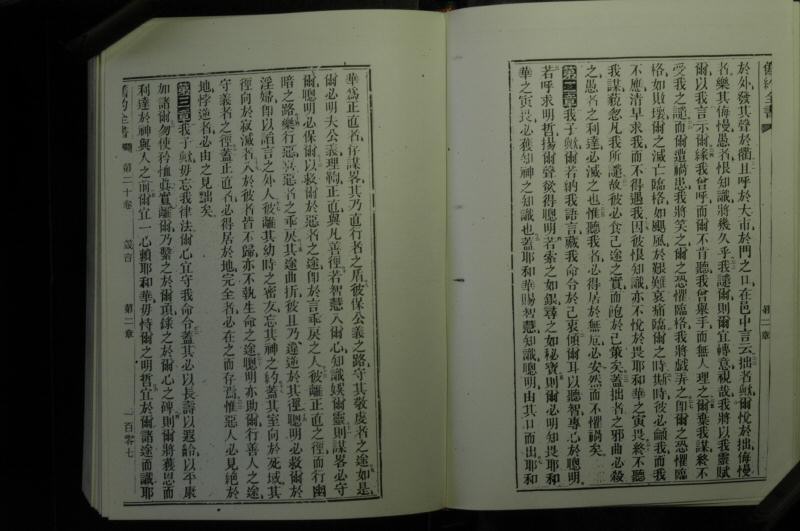 舊約全書
於外、發其聲於衢且呼於大市於門之口、在邑中言云、拙者歟、爾悅於拙、侮慢
者樂其侮慢、愚者恨知識、將幾久乎、我譴爾則爾宜轉意視哉我將以我靈賦
爾以我言示爾緣我曾呼而爾不肯聽我曾舉手而無人理之爾棄我謀終不
受我之譴而爾遭禍患我將笑之爾之恐懼臨格我將戲弄之即爾之恐懼臨
格如敗壞爾之滅亡臨格如颶風於艱難哀痛臨爾之時斯時彼必籲我而我
不應清早求我而不得遇我因彼恨知識亦不悅於畏耶和華之寅畏終不聽
我謀藐忽凡我所譴故彼必食己途之實而飽於己策矣蓋拙者之邪曲必殺
之愚者之利達必滅之也惟聽我者必得居於無厄必安然而不懼禍矣
第二章我子歟爾若納我語言藏我命令於己衷傾爾耳以聽智專心於聰明
若呼求明哲揚爾聲欲得聰明若索之如銀尋之如秘寶則爾必明知畏耶和
華之寅畏必獲知神之知識也蓋耶和華賜智慧知識聰明由其口而出耶和
第二章
華爲正直者存謀畧其乃直行者之盾彼保公義之路守其敬虔者之途如是
爾必明夫公義理鞫正直與凡善徑若智慧入爾心知識娛爾靈則謀畧必守
爾聰明必保爾以救爾於惡者之途即於言乖戾之人彼離正直之徑而行幽
暗之路樂行惡喜惡者之乖戾其途曲折彼且乃違逆於其徑聰明必救爾於
淫婦即以諂言之外人彼離其幼時之密友忘其神之約蓋其至向於死域其
徑向於寂滅者入於彼者皆不歸亦不執生命之途聰明亦助爾行善人之途
守義者之徑蓋正直者必得居於地完全者必在之而存焉惟惡人必見絕於
地悖逆者必由之見黜矣
第三章我子歟毋忘我律法爾心宜守我命令蓋其必以長壽以遐齡以平康
加諸爾勿使矜恤真實離爾乃繫之於爾項錄之於爾心之碑則爾將獲恩而
利達於神與人之前爾宜一心賴耶和華毋恃爾之明哲宜於爾諸途而識耶
舊約全書 第二十卷 箴言 第二章 一百零七